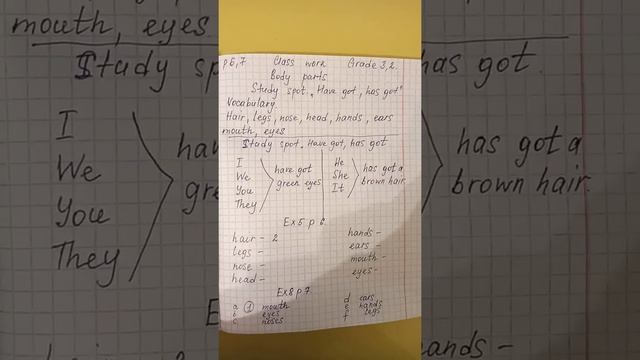 p 6,7 Class work Grade 3,2.
Body parts
Study spot „Have got, has got"
Vocabulary.
Hair, legs, nose, head, hands, ears
mouth, eyes
Study spot. Have got, has got
I
We
You
They
have got
green eyes
He
She
It
has got a
brown hair.
Ex 5 p 6.
hair - 2
legs -
nose -
head -
hands -
ears -
mouth -
eyes -
Ex 8 p 7
a 1 mouth
b eyes
c noses
d ears
e hands
f legs